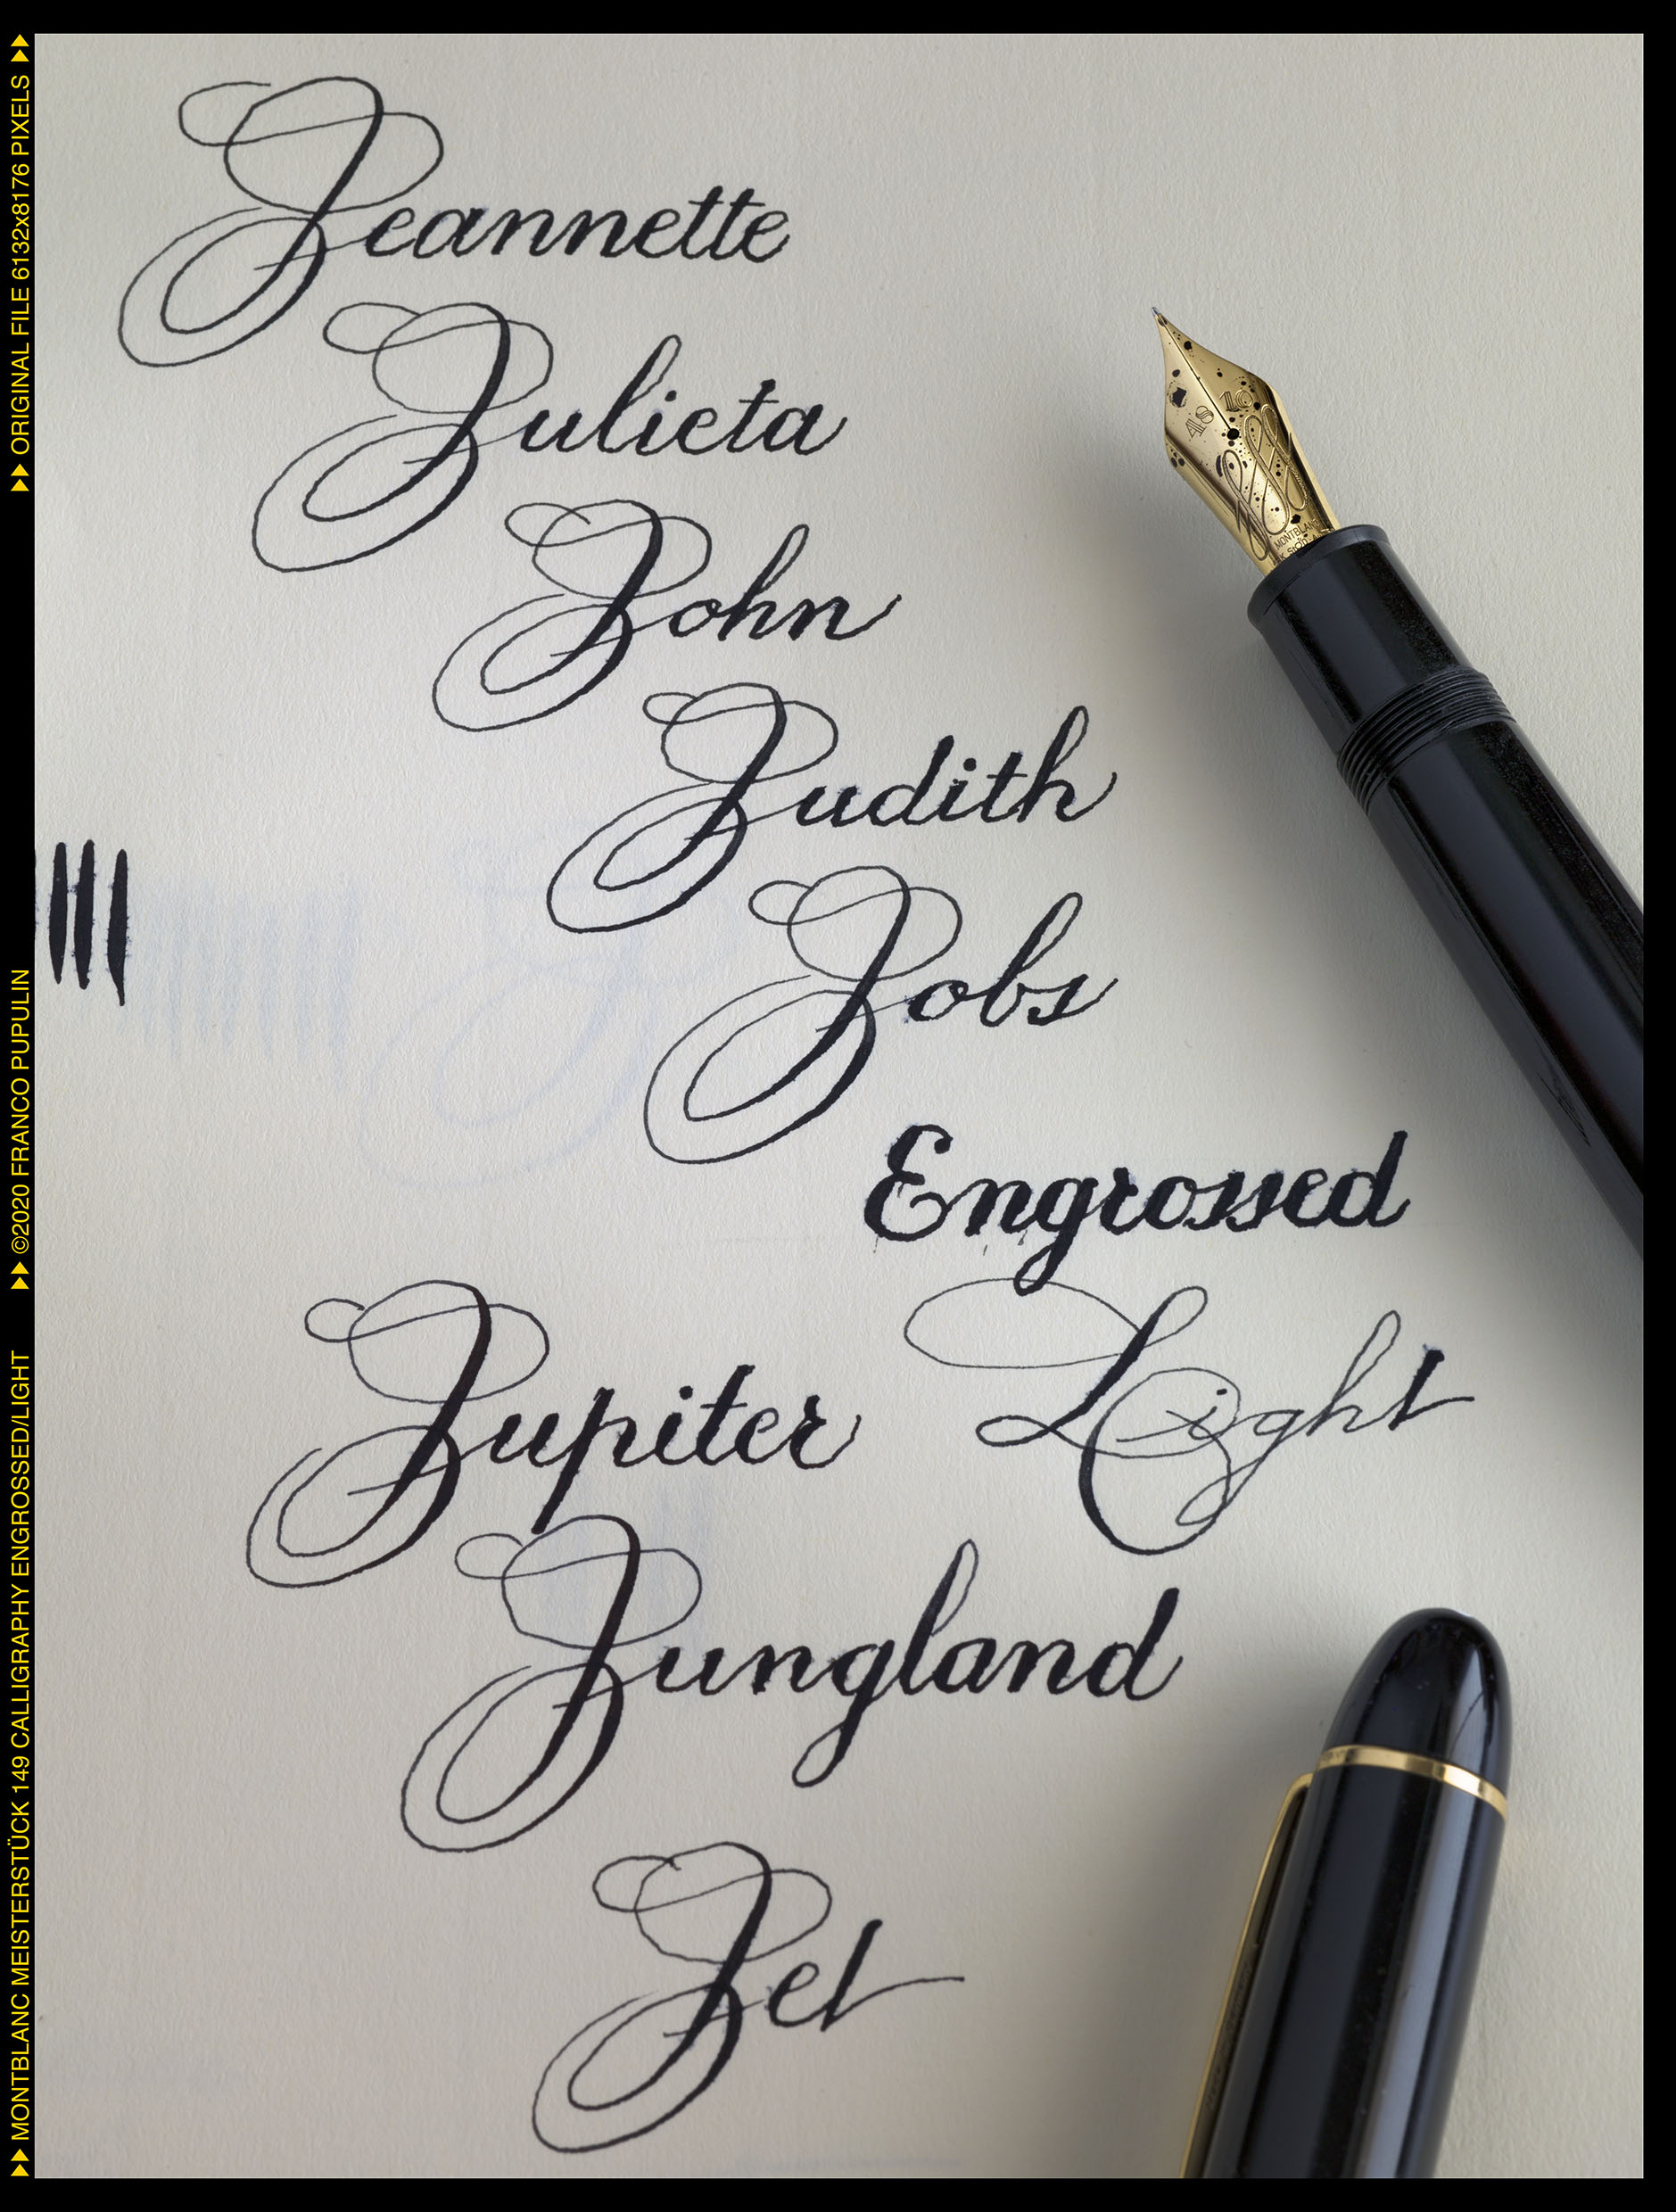 Jeannette
Julieta
John
Judith
Jobs
Engrossed
Light
Jupiter
Jungland
Jet
MONTBLANC MEISTERSTÜCK 149 CALLIGRAPHY ENGROSSED/LIGHT
©2020 FRANCO PUPULIN
ORIGINAL FILE 6132x8176 PIXELS
MONTBLANC